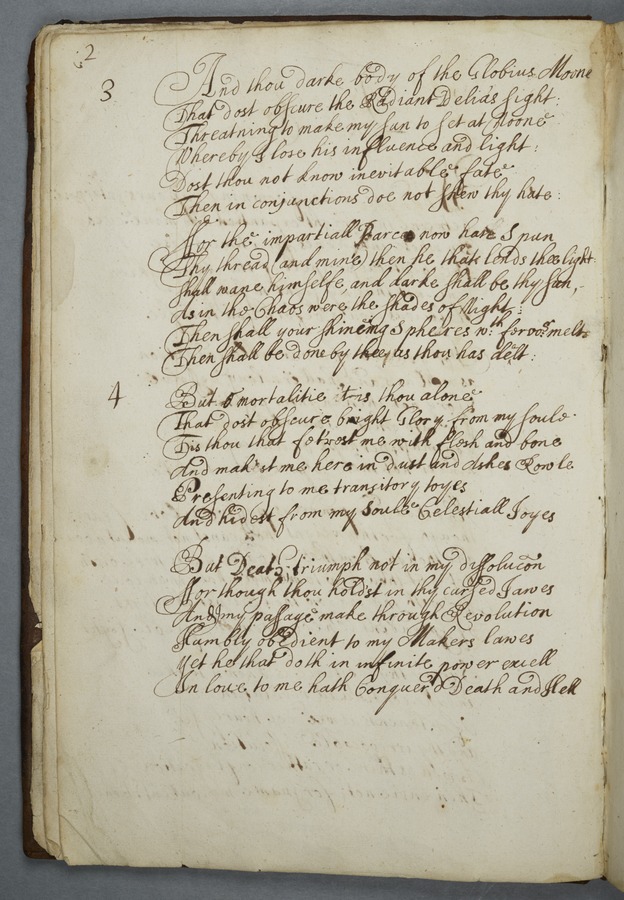 2
3
And thou darke body of the Globius Moone
That dost obscure the Radiant Delias light:
Threatning to make my sun to set at Noone
Whereby I lose his influence and light:
Dost thou not know inevitable fate
Then in conjunctions doe not shew thy hate:
ffor the impartiall Parcæ now hath spun
Thy thread (and mine) then he that lends thee light
Shall wane himselfe, and darke shall be thy sun,
As in the Chaos were the shades of Night:
Then shall your shineing Spheires wth fervor melt
Then shall be done by thee, as thou has delt:
4
But ô mortalitie 'tis thou alone
That dost obscure bright Glory from my soule
Tis thou that fetrest me with flesh and bone
And mak'st me here in dust and Ashes Rowle
Presenting to me transitory toyes
And hidest from my soule Celestiall Joyes
But Death, triumph not in my dissolucōn
ffor though thou holdst in thy cursed Jawes
And my passage make through Revolution
Humbly obedient to my Makers lawes
Yet he that doth in infinite power excell
In love to me hath Conquer'd Death and Hell